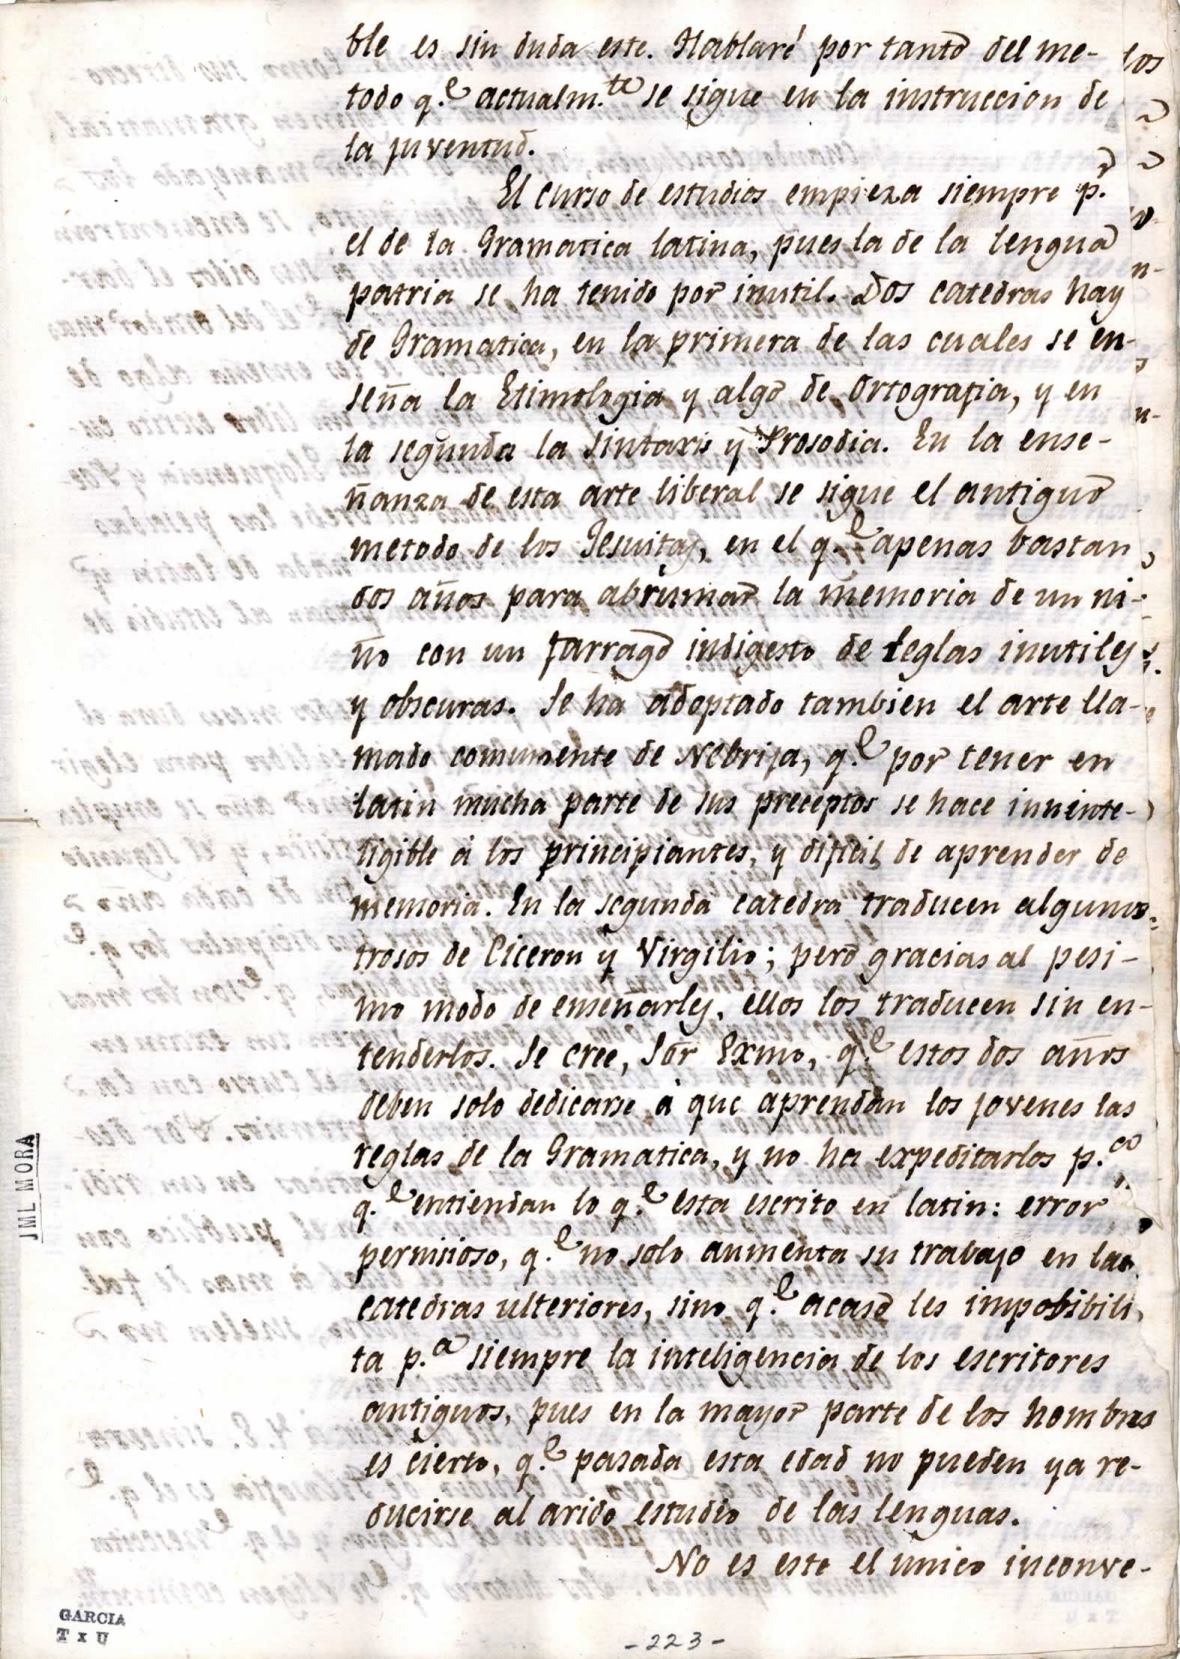 ble es sin duda este. Hablaré por tanto del me-
todo q.e actualm.te se sigue en la instruccion de
la juventud.
El curso de estudios empieza siempre p.r
el de la Gramatica latina, pues la de la lengua
patria se ha tenido por inutil. Dos catedras hay
de Gramatica, en la primera de las cuales se en-
seña la Etimologia y algo de Ortografia, y en
la segunda la Sintaxis y Prosodia. En la ense-
ñanza de esta arte liberal se sigue el antiguo
metodo de los Jesuitas, en el q.e apenas bastan
dos años para abrumar la memoria de un ni-
ño con un farrago indigesto de reglas inutiles
y obscuras. Se ha adoptado tambien el arte lla-
mado comunmente de Nebrija, q.e por tener en
latin mucha parte de sus preceptos se hace ininte-
ligible á los principiantes, y dificil de aprender de
memoria. En la segunda catedra traducen algunos
trosos de Ciceron y Virgilio; pero gracias al pesi-
mo modo de enseñarles, ellos los traducen sin en-
tenderlos. Se cree, Sor Exmo, q.e estos dos años
deben solo dedicarse á que aprendan los jovenes las
reglas de la Gramatica, y no ha expeditarlos p.a
q.e entiendan lo q.e esta escrito en latin: error
pernisioso, q.e no solo aumenta su trabajo en las
catedras ulteriores, sino q.e acaso les imposibili
ta p.a siempre la inteligencia de los escritores
antiguos, pues en la mayor parte de los hombres
es cierto, q.e pasada esta edad no pueden ya re-
ducirse al arido estudio de las lenguas.
No es este el unico inconve-
JML MORA
GARCIA
T x U
-223-